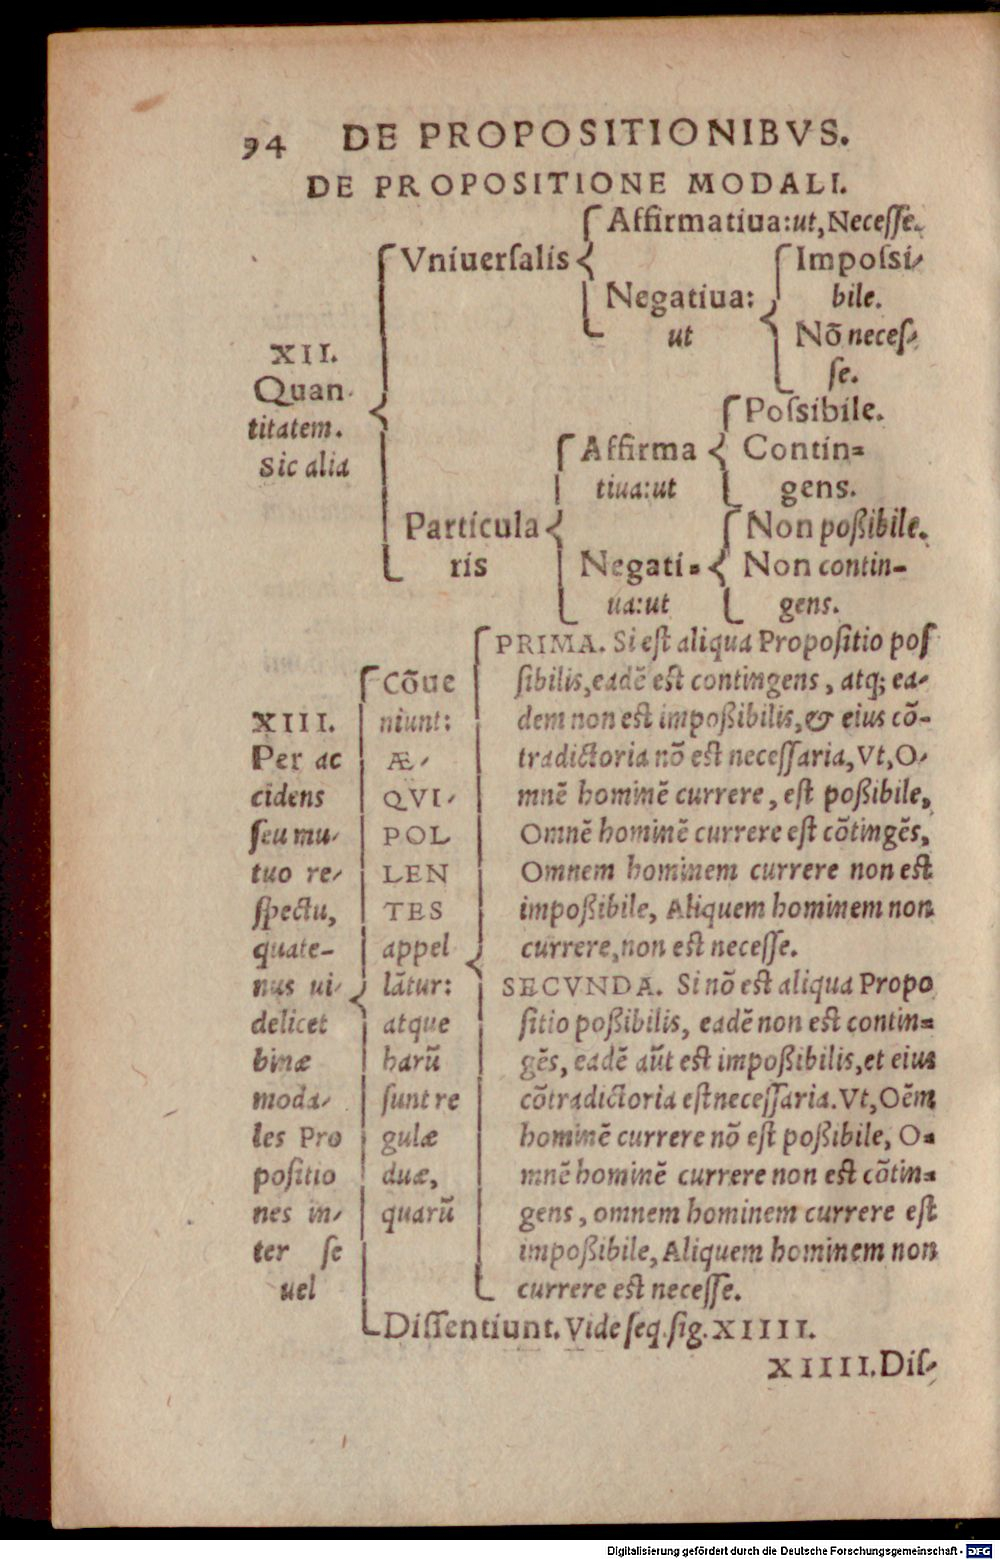 94 DE PROPOSITIONIBVS.
DE PROPOSITIONE MODALI.
XII.
Quan-
titatem.
Sic alia
Vniuerſalis
Affirmatiua: ut, Neceſſe.
Negatiua:
ut
Impoſsi-
bile.
Nō neceſ-
ſe.
Particula
ris
Affirma
tiua: ut
Poſsibile.
Contin-
gens.
Negati-
ua: ut
Non poßibile.
Non contin-
gens.
XIII.
Per ac
cidens
ſeu mu-
tuo re-
ſpectu,
quate-
nus ui-
delicet
binæ
moda-
les Pro
poſitio
nes in-
ter ſe
uel
Cōue
niunt:
Æ-
QVI-
POL
LEN
TES
appel
lātur:
atque
harū
ſunt re
gulæ
duæ,
quarū
PRIMA. Si eſt aliqua Propoſitio poſ
ſibilis, eadē eſt contingens, atq; ea-
dem non eſt impoßibilis, & eius cō-
tradictoria nō eſt neceſſaria, Vt, O-
mnē hominē currere, eſt poßibile,
Omnē hominē currere eſt cōtingēs,
Omnem hominem currere non eſt
impoßibile, Aliquem hominem non
currere, non eſt neceſſe.
SECVNDA. Si nō eſt aliqua Propo
ſitio poßibilis, eadē non eſt contin-
gēs, eadē aūt eſt impoßibilis, et eius
cōtradictoria eſt neceſſaria. Vt, Oēm
hominē currere nō eſt poßibile, O-
mnē hominē currere non eſt cōtin-
gens, omnem hominem currere eſt
impoßibile, Aliquem hominem non
currere eſt neceſſe.
Diſſentiunt. Vide ſeq. fig. XIIII.
XIIII. Diſ-
Digitalisierung gefördert durch die Deutsche Forschungsgemeinschaft - DFG